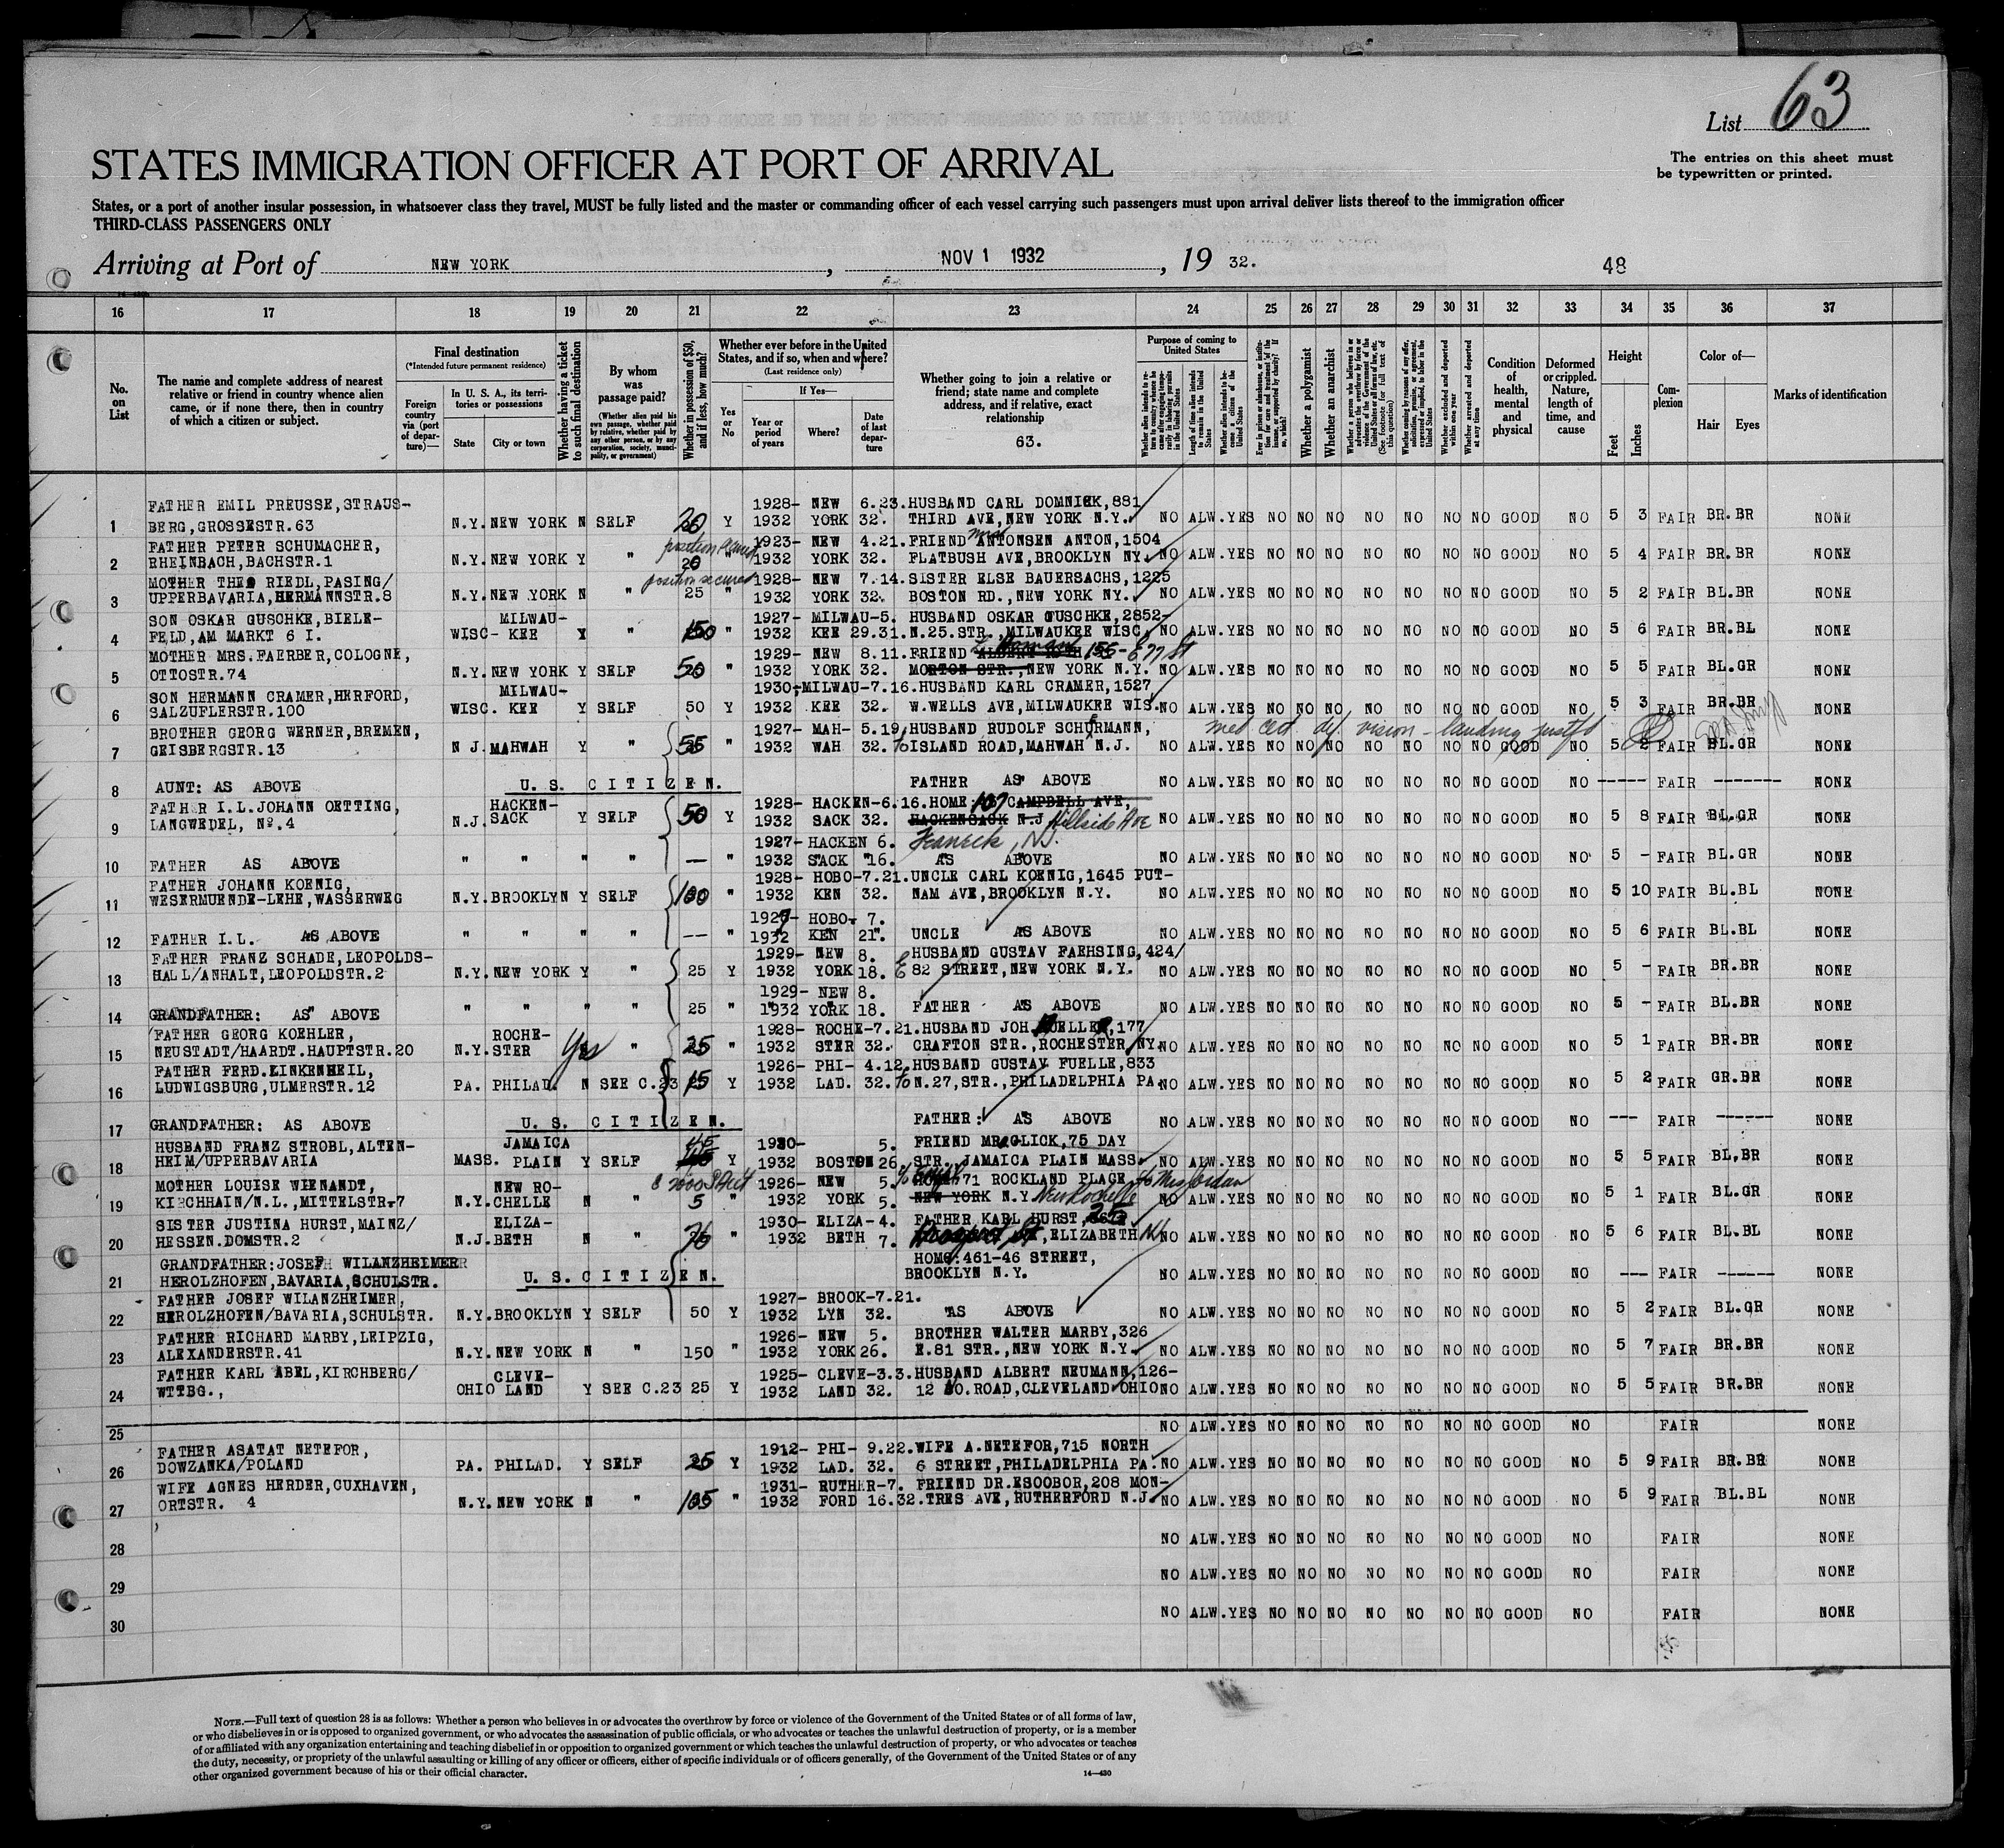 List 63
The entries on this sheet must
be typewritten or printed.
STATES IMMIGRATION OFFICER AT PORT OF ARRIVAL
States, or a port of another insular possession, in whatsoever class they travel, MUST be fully listed and the master or commanding officer of each vessel carrying such passengers must upon arrival deliver lists thereof to the immigration officer
THIRD-CLASS PASSENGERS ONLY
Arriving at Port of NEW YORK, NOV 1 1932, 19 32.
48
16 17 18 19 20 21 22 23 24 25 26 27 28 29 30 31 32 33 34 35 36 37
No. on List
The name and complete address of nearest relative or friend in country whence alien came, or if none there, then in country of which a citizen or subject.
Final destination
(*Intended future permanent residence)
Foreign country via (port of departure)—
In U. S. A., its territories or possessions
State City or town
Whether having a ticket to such final destination
By whom was passage paid?
(Whether alien paid his own passage, whether paid by relative, whether paid by any other person, or by any corporation, society, municipality, or government)
Whether in possession of $50, and if less, how much?
Whether ever before in the United States, and if so, when and where?
(Last residence only)
Yes or No
If Yes—
Year or period of years
Where?
Date of last departure
Whether going to join a relative or friend; state name and complete address, and if relative, exact relationship
63.
Purpose of coming to United States
Whether alien intends to return to country whence he came after engaging temporarily in laboring pursuits in the United States
Length of time alien intends to remain in the United States
Whether alien intends to become a citizen of the United States
Ever in prison or almshouse, or institution for care and treatment of the insane, or supported by charity? If so, which?
Whether a polygamist
Whether an anarchist
Whether a person who believes in or advocates the overthrow by force or violence of the Government of the United States or all forms of law, etc. (See footnote for full text of this question)
Whether coming by reason of any offer, solicitation, promise, or agreement, expressed or implied, to labor in the United States
Whether excluded and deported within one year
Whether arrested and deported at any time
Condition of health, mental and physical
Deformed or crippled. Nature, length of time, and cause
Height
Feet Inches
Complexion
Color of—
Hair Eyes
Marks of identification
FATHER EMIL PREUSSE,STRAUS- 1928- NEW 6.23. HUSBAND CARL DOMNICK,881
1 BERG,GROSSESTR.63 N.Y. NEW YORK N SELF 20 Y 1932 YORK 32. THIRD AVE,NEW YORK N.Y. NO ALW. YES NO NO NO NO NO NO NO GOOD NO 5 3 FAIR BR.BR NONE
FATHER PETER SCHUMACHER, position secured 1923- NEW 4.21. FRIEND ANTONSEN ANTON,1504
2 RHEINBACH,BACHSTR.1 N.Y. NEW YORK Y " 20 " 1932 YORK 32. FLATBUSH AVE,BROOKLYN NY. NO ALW. YES NO NO NO NO NO NO NO GOOD NO 5 4 FAIR BR.BR NONE
MOTHER THEO RIEDL,PASING/ position secured 1928- NEW 7.14. SISTER ELSE BAUERSACHS,1225
3 UPPERBAVARIA,HERMANNSTR.8 N.Y. NEW YORK N " 25 " 1932 YORK 32. BOSTON RD.,NEW YORK NY. NO ALW. YES NO NO NO NO NO NO NO GOOD NO 5 2 FAIR BL.BR NONE
SON OSKAR GUSCHKE,BIELE- MILWAU- 1927- MILWAU-5. HUSBAND OSKAR GUSCHKE,2852-
4 FELD,AM MARKT 6 I. WISC- KEE Y " 150 " 1932 KEE 29.31. N.25.STR.,MILWAUKEE WISC. NO ALW. YES NO NO NO NO NO NO NO GOOD NO 5 6 FAIR BR.BL NONE
MOTHER MRS.FAERBER,COLOGNE, 1929- NEW 8.11. FRIEND 155- E 77 St
5 OTTOSTR.74 N.Y. NEW YORK Y SELF 50 " 1932 YORK 32. MORTON STR.,NEW YORK N.Y. NO ALW. YES NO NO NO NO NO NO NO GOOD NO 5 5 FAIR BL.GR NONE
SON HERMANN CRAMER,HERFORD, MILWAU- 1930- MILWAU-7.16. HUSBAND KARL CRAMER,1527
6 SALZUFLERSTR.100 WISC. KEE Y SELF 50 Y 1932 KEE 32. W.WELLS AVE,MILWAUKEE WIS. NO ALW. YES NO NO NO NO NO NO NO GOOD NO 5 3 FAIR BR.BR NONE
BROTHER GEORG WERNER,BREMEN, 1927- MAH- 5.19. HUSBAND RUDOLF SCHURMANN, med cert def. vision - landing justfd
7 GEISBERGSTR.13 N J. MAHWAH Y " 55 " 1932 WAH 32. ISLAND ROAD,MAHWAH N.J. NO ALW. YES NO NO NO NO NO NO NO GOOD NO 5 2 FAIR BL.GR NONE
8 AUNT: AS ABOVE U. S. CITIZEN. FATHER AS ABOVE NO ALW. YES NO NO NO NO NO NO NO GOOD NO ----- FAIR ------- NONE
FATHER I.L.JOHANN OETTING, HACKEN- 1928- HACKEN-6.16. HOME: 107 CAMPBELL AVE,
9 LANGWEDEL, No.4 N.J. SACK Y SELF 50 Y 1932 SACK 32. HACKENSACK N.J Hillside Ave
Teaneck, NJ.
1927- HACKEN 6.
NO ALW. YES NO NO NO NO NO NO NO GOOD NO 5 8 FAIR BL.GR NONE
10 FATHER AS ABOVE " " " " — " 1932 SACK 16. AS ABOVE NO ALW. YES NO NO NO NO NO NO NO GOOD NO 5 - FAIR BL.GR NONE
FATHER JOHANN KOENIG, 1928- HOBO-7.21. UNCLE CARL KOENIG,1645 PUT-
11 WESERMUENDE-LEHE,WASSERWEG N.Y. BROOKLYN Y SELF 100 " 1932 KEN 32. NAM AVE,BROOKLYN N.Y. NO ALW. YES NO NO NO NO NO NO NO GOOD NO 5 10 FAIR BL.BL NONE
1927- HOBO- 7.
12 FATHER I.L. AS ABOVE " " " " -- " 1932 KEN 21. UNCLE AS ABOVE NO ALW. YES NO NO NO NO NO NO NO GOOD NO 5 6 FAIR BL.BL NONE
FATHER FRANZ SCHADE,LEOPOLDS- 1929- NEW 8. HUSBAND GUSTAV FAEHSING,424/
13 HALL/ANHALT,LEOPOLDSTR.2 N.Y. NEW YORK Y " 25 Y 1932 YORK 18. E 82 STREET,NEW YORK N.Y. NO ALW. YES NO NO NO NO NO NO NO GOOD NO 5 - FAIR BR.BR NONE
1929- NEW 8.
14 GRANDFATHER: AS ABOVE " " " " 25 " 1932 YORK 18. FATHER AS ABOVE NO ALW. YES NO NO NO NO NO NO NO GOOD NO 5 - FAIR BL.BR NONE
FATHER GEORG KOEHLER, ROCHE- 1928- ROCHE-7.21. HUSBAND JOH. MUELLER,177
15 NEUSTADT/HAARDT.HAUPTSTR.20 N.Y. STER Yes " 25 " 1932 STER 32. CRAFTON STR.,ROCHESTER,NY. NO ALW. YES NO NO NO NO NO NO NO GOOD NO 5 1 FAIR BR.BR NONE
FATHER FERD.LINKENHEIL, 1926- PHI- 4.12. HUSBAND GUSTAV FUELLE,833
16 LUDWIGSBURG,ULMERSTR.12 PA. PHILAD. N SEE C.23 15 Y 1932 LAD. 32. N.27,STR.,PHILADELPHIA PA. NO ALW. YES NO NO NO NO NO NO NO GOOD NO 5 2 FAIR GR.BR NONE
17 GRANDFATHER: AS ABOVE U. S. CITIZEN. FATHER: AS ABOVE NO ALW. YES NO NO NO NO NO NO NO GOOD NO --- FAIR ------ NONE
HUSBAND FRANZ STROBL,ALTEN- JAMAICA 45 1930- 5. FRIEND MR.GLICK,75 DAY
18 HEIM/UPPERBAVARIA MASS. PLAIN Y SELF Y 1932 BOSTON 26. STR. JAMAICA PLAIN MASS. NO ALW. YES NO NO NO NO NO NO NO GOOD NO 5 5 FAIR BL.BR NONE
MOTHER LOUISE WIENANDT, NEW RO- 1926- NEW 5. 71 ROCKLAND PLACE c/o Mrs Jordan
19 KIRCHHAIN/N.L.,MITTELSTR.7 N.Y. CHELLE N " 5 " 1932 YORK 5. NEW YORK N.Y. New Rochelle NO ALW. YES NO NO NO NO NO NO NO GOOD NO 5 1 FAIR BL.GR NONE
SISTER JUSTINA HURST,MAINZ/ ELIZA- 1930- ELIZA-4. FATHER KARL HURST, 25
20 HESSEN.DOMSTR.2 N.J. BETH N " " 1932 BETH 7. Prospect St,ELIZABETH NJ NO ALW. YES NO NO NO NO NO NO NO GOOD NO 5 6 FAIR BL.BL NONE
GRANDFATHER:JOSEF WILANZHEIMER HOME:461-46 STREET,
21 HEROLZHOFEN,BAVARIA,SCHULSTR. U. S. CITIZEN. BROOKLYN N.Y. NO ALW. YES NO NO NO NO NO NO NO GOOD NO --- FAIR ------ NONE
FATHER JOSEF WILANZHEIMER, 1927- BROOK-7.21.
22 HEROLZHOFEN/BAVARIA,SCHULSTR. N.Y. BROOKLYN Y SELF 50 Y 1932 LYN 32. AS ABOVE NO ALW. YES NO NO NO NO NO NO NO GOOD NO 5 2 FAIR BL.GR NONE
FATHER RICHARD MARBY,LEIPZIG, 1926- NEW 5. BROTHER WALTER MARBY,326
23 ALEXANDERSTR.41 N.Y. NEW YORK N " 150 " 1932 YORK 26. E.81 STR.,NEW YORK N.Y. NO ALW. YES NO NO NO NO NO NO NO GOOD NO 5 7 FAIR BR.BR NONE
FATHER KARL ABEL,KIRCHBERG/ CLEVE- 1925- CLEVE-3.3. HUSBAND ALBERT NEUMANN,126-
24 WTTBG., OHIO LAND Y SEE C.23 25 Y 1932 LAND 32. 12 SO.ROAD,CLEVELAND OHIO NO ALW. YES NO NO NO NO NO NO NO GOOD NO 5 5 FAIR BR.BR NONE
25 NO ALW. YES NO NO NO NO NO NO NO GOOD NO FAIR NONE
FATHER ASATAT NETEFOR, 1912- PHI- 9.22. WIFE A.NETEFOR,715 NORTH
26 DOWZANKA/POLAND PA. PHILAD. Y SELF 25 Y 1932 LAD. 32. 6 STREET,PHILADELPHIA PA. NO ALW. YES NO NO NO NO NO NO NO GOOD NO 5 9 FAIR BR.BR NONE
WIFE AGNES HERDER,CUXHAVEN, 1931- RUTHER-7. FRIEND DR.ESCOBOR,208 MON-
27 ORTSTR. 4 N.Y. NEW YORK N " 105 " 1932 FORD 16.32. TRES AVE,RUTHERFORD N.J. NO ALW. YES NO NO NO NO NO NO NO GOOD NO 5 9 FAIR BL.BL NONE
28 NO ALW. YES NO NO NO NO NO NO NO GOOD NO FAIR NONE
29 NO ALW. YES NO NO NO NO NO NO NO GOOD NO FAIR NONE
30 NO ALW. YES NO NO NO NO NO NO NO GOOD NO FAIR NONE
NOTE.—Full text of question 28 is as follows: Whether a person who believes in or advocates the overthrow by force or violence of the Government of the United States or of all forms of law,
or who disbelieves in or is opposed to organized government, or who advocates the assassination of public officials, or who advocates or teaches the unlawful destruction of property, or is a member
of or affiliated with any organization entertaining and teaching disbelief in or opposition to organized government or which teaches the unlawful destruction of property, or who advocates or teaches
the duty, necessity, or propriety of the unlawful assaulting or killing of any officer or officers, either of specific individuals or of officers generally, of the Government of the United States or of any
other organized government because of his or their official character.
14—430